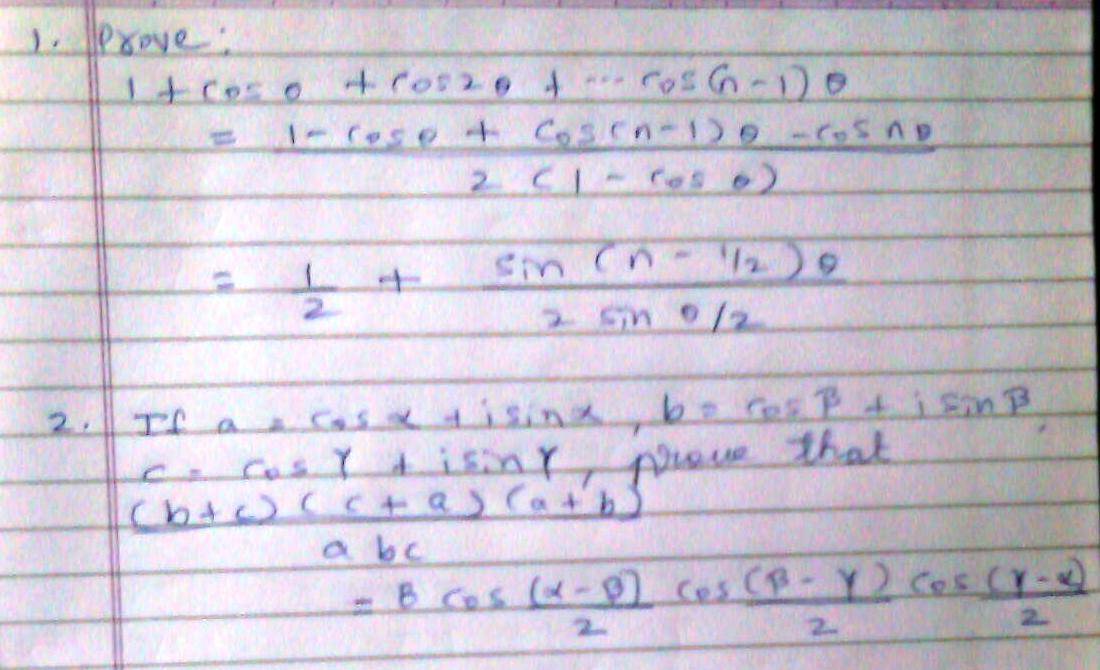 1. Prove:
1 + cos θ + cos 2θ + ... cos(n-1)θ
= 1 - cos θ + cos(n-1)θ - cos nθ
2 (1 - cos θ)
= 1/2 + sin (n - 1/2)θ
2 sin θ/2
2. If a = cos α + i sin α, b = cos β + i sin β,
c = cos γ + i sin γ, prove that
(b+c) (c+a) (a+b)
abc
= 8 cos (α-β)/2 cos (β-γ)/2 cos (γ-α)/2